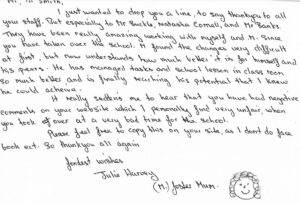 Mr. M Smith,
I just wanted to drop you a line, to say thankyou to all
your staff. But especially to Mr Buckle, Natasha Cornell, and Mr Banks
They have been really amazing working with myself and M. Since
you have taken over the school. M found the changes very difficult
at first, but now understands how much better it is for himself and
his peers. He has managed maths and school lesson in class room
so much better and is finally reaching his potential that I knew
he could acheive.
It really saddens me to hear that you have had negative
comments on your website which I personally find very unfair, when
you took of over at a very bad time for the school.
Please feel free to copy this on your side, as I don't do face
book ect. So thankyou all again
fondest wishes
Julie Harvey
(M) foster Mum.